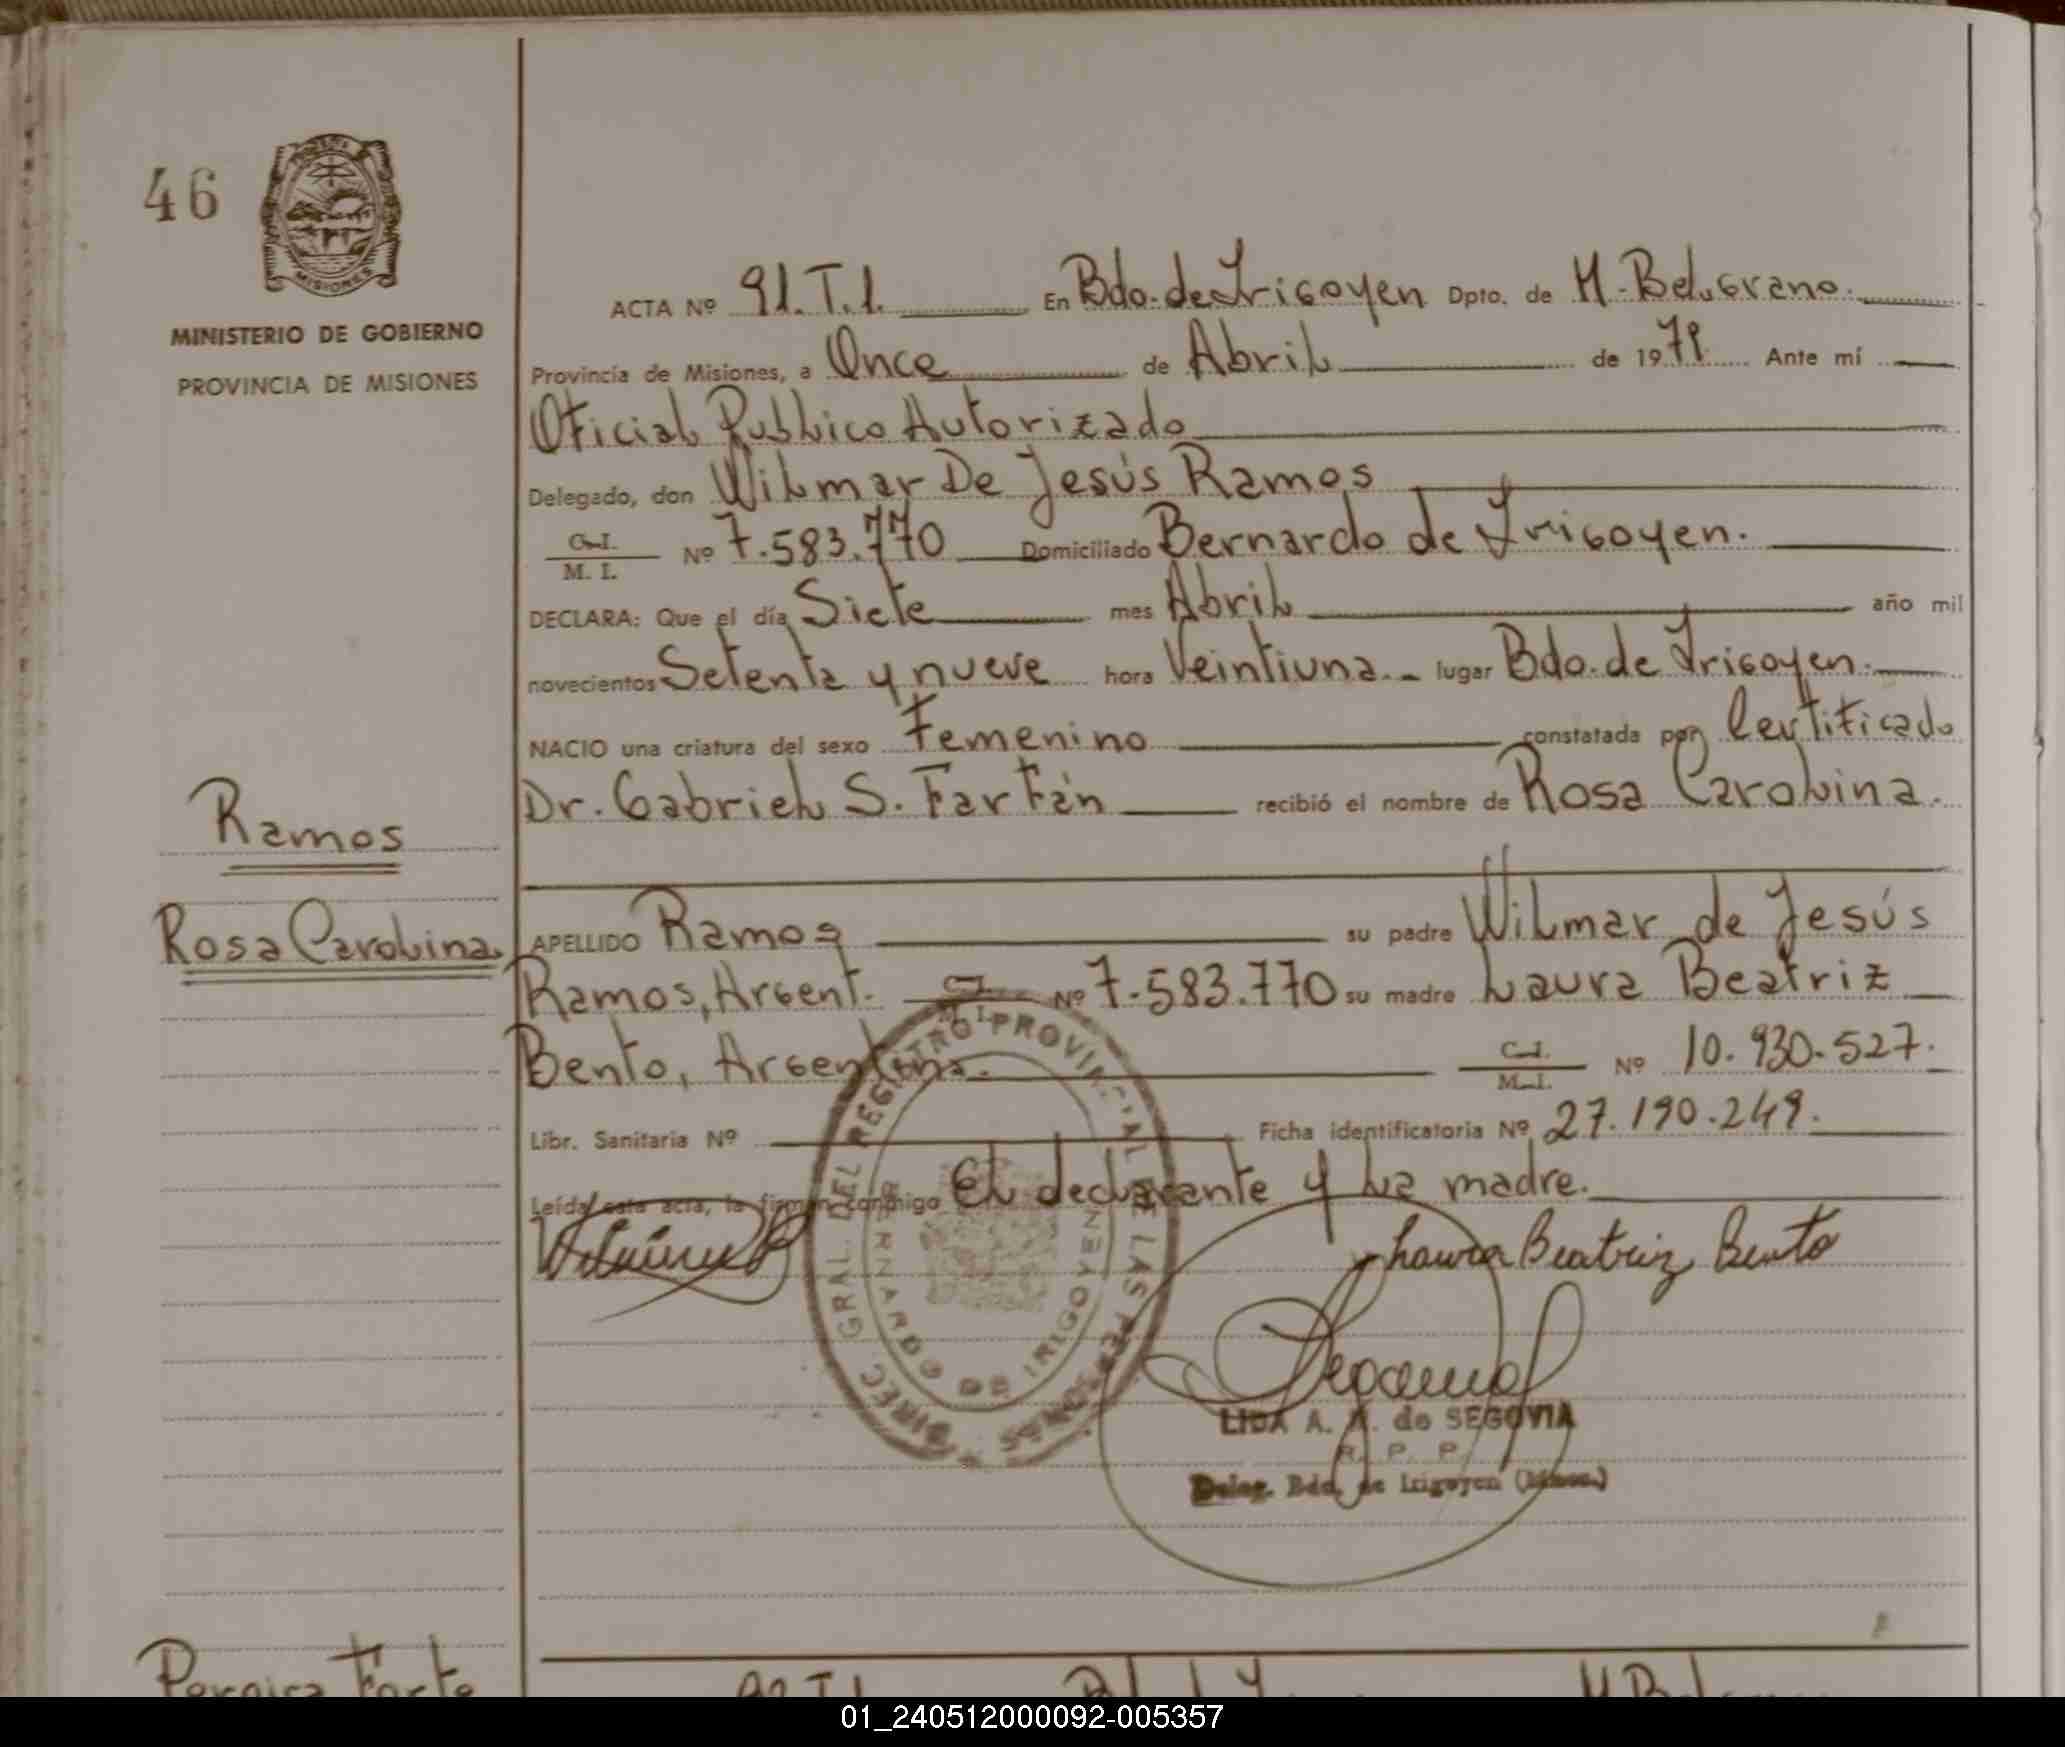 46
MISIONES
MINISTERIO DE GOBIERNO
PROVINCIA DE MISIONES
Ramos
Rosa Carolina
ACTA Nº 91.T.1. En Bdo. de Irigoyen Dpto. de M. Belgrano.
Provincia de Misiones, a Once de Abril de 1979 Ante mí
Oficial Publico Autorizado
Delegado, don Wilmar De Jesús Ramos
C.I.
M. I. Nº 7.583.770 Domiciliado Bernardo de Irigoyen.
DECLARA: Que el día Siete mes Abril año mil
novecientos Setenta y nueve hora Veintiuna. lugar Bdo. de Irigoyen.
NACIO una criatura del sexo Femenino constatada por Certificado
Dr. Gabriel S. Farfán recibió el nombre de Rosa Carolina.
APELLIDO Ramos su padre Wilmar de Jesús
Ramos, Argent. C.I. M. I. Nº 7.583.770 su madre Laura Beatriz
Bento, Argentina. C.I. M.I. Nº 10.930.527.
Libr. Sanitaria Nº Ficha identificatoria Nº 27.190.249.
Leída esta acta, la firman conmigo El declarante y la madre.
Laura Beatriz Bento
DIREC. GRAL. DEL REGISTRO PROVINCIAL DE LAS PERSONAS
BERNARDO DE IRIGOYEN
LIDA A. de SEGOVIA
R. P. P.
Deleg. Bdo. de Irigoyen (Mnes.)
Pereira Forte
92 T.1
01_240512000092-005357